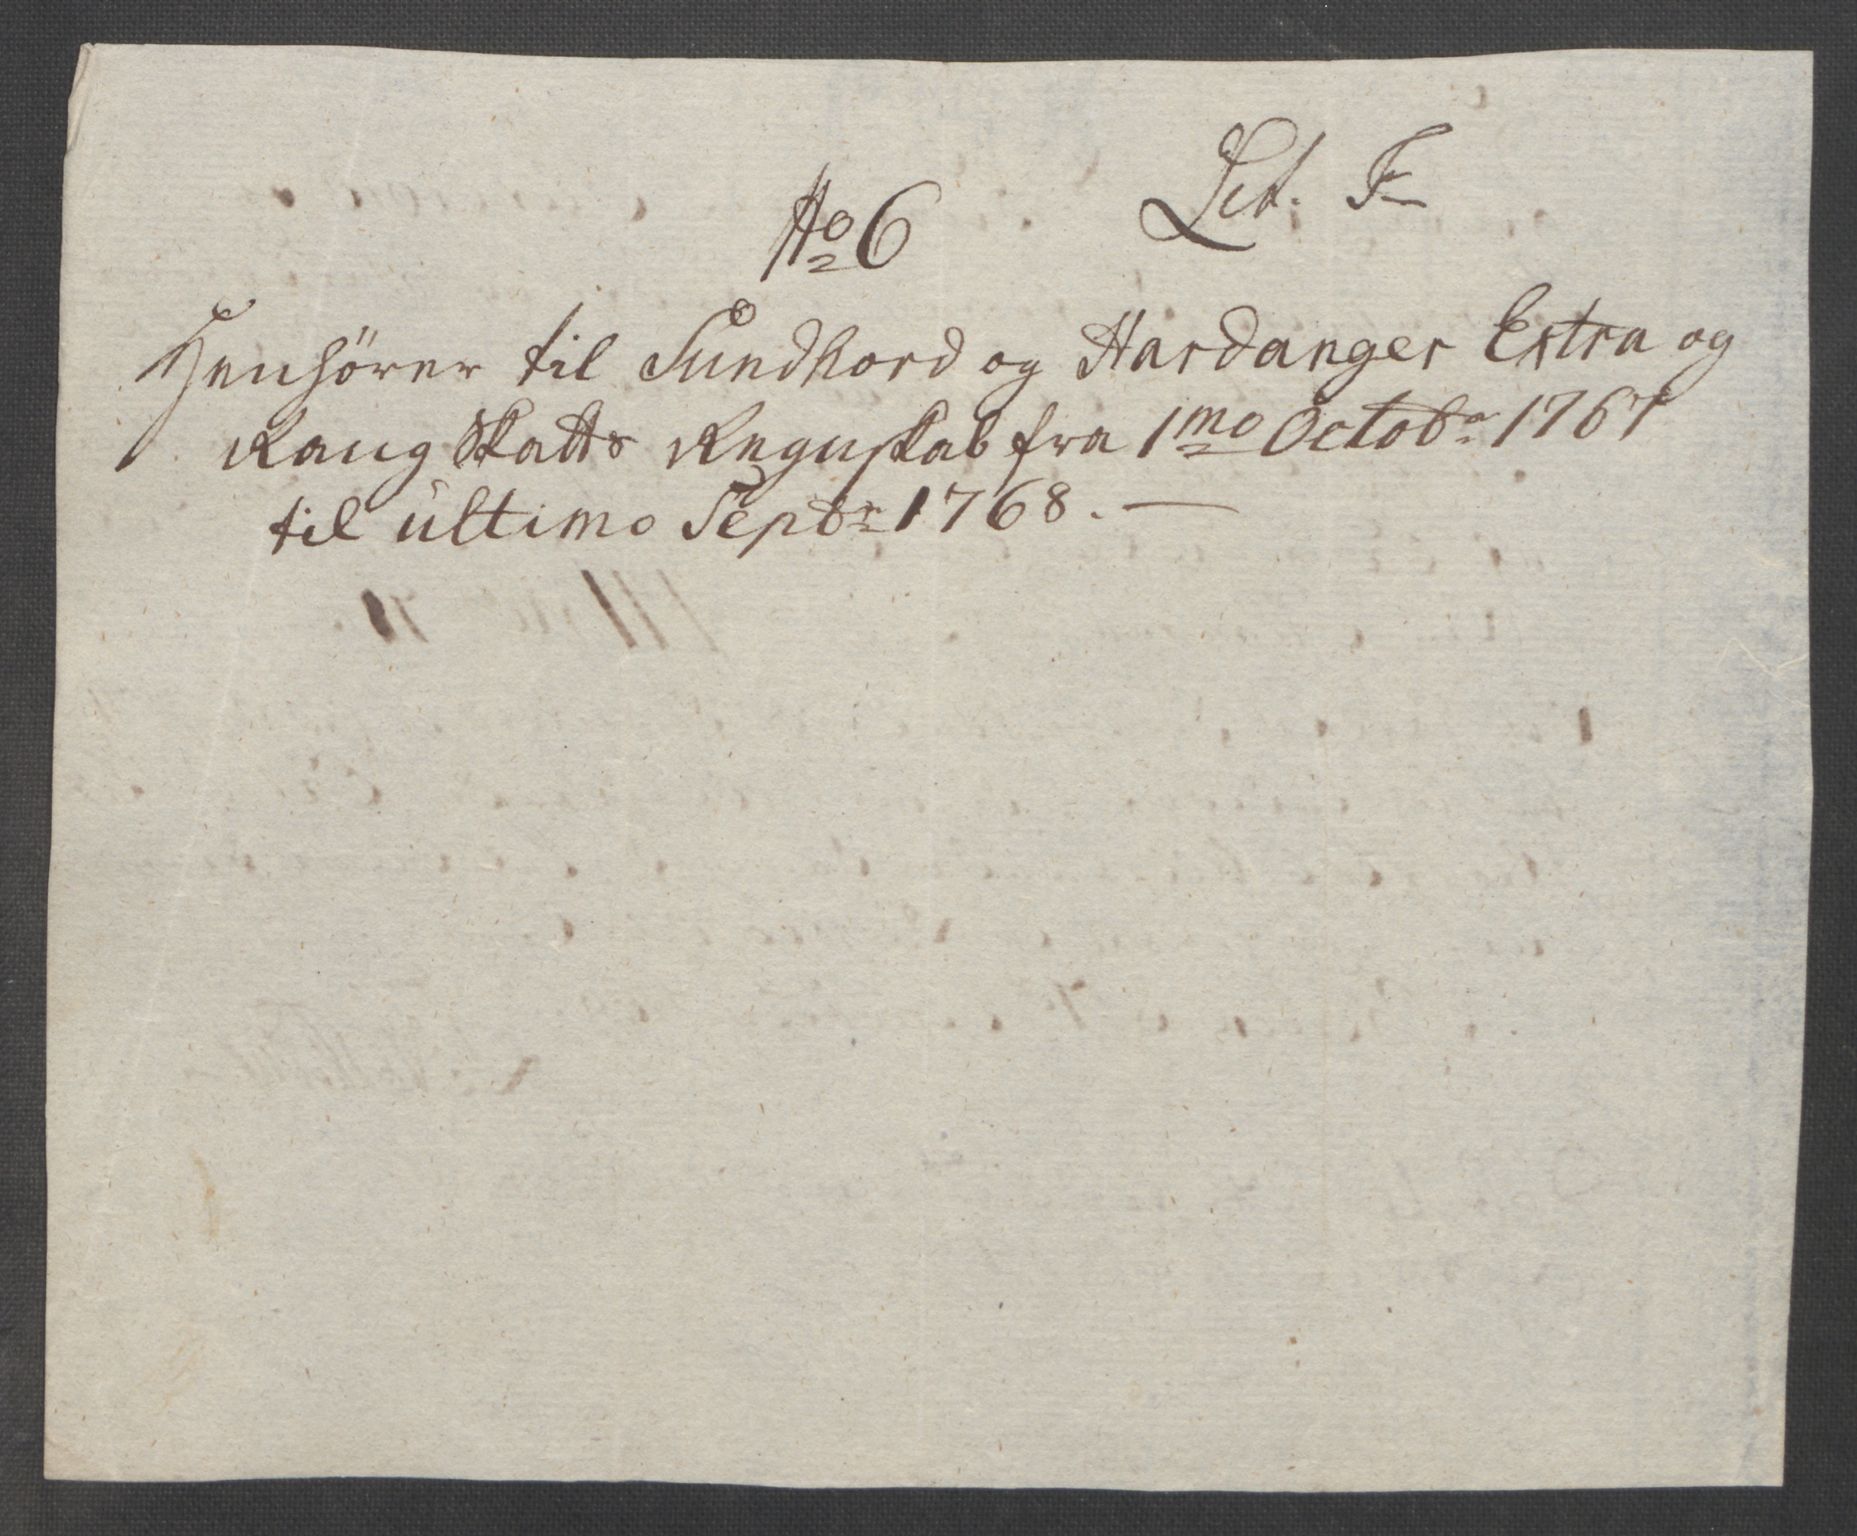 No 6 Lit. F
Henhörer til Sundhord og Hardanger Extra og
Rang Skatts Regnskab fra 1mo Octobr 1767
til ultimo Septbr 1768. —